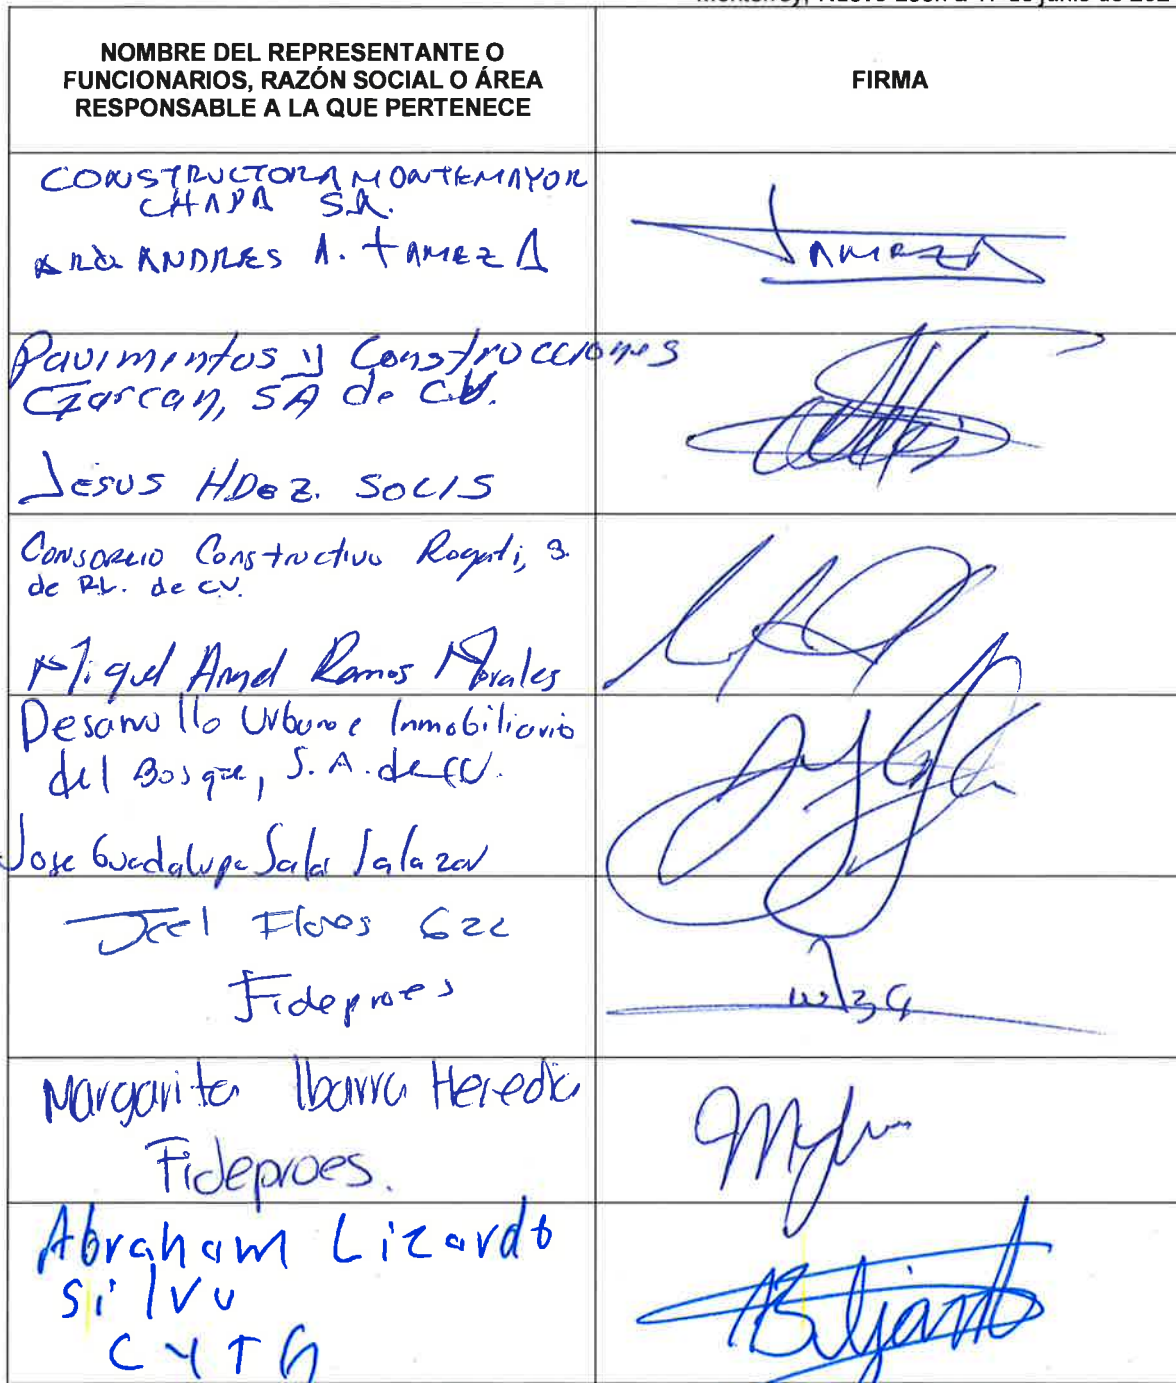 Monterrey, Nuevo León a 17 de junio de 202
NOMBRE DEL REPRESENTANTE O
FUNCIONARIOS, RAZÓN SOCIAL O ÁREA
RESPONSABLE A LA QUE PERTENECE
FIRMA
CONSTRUCTORA MONTEMAYOR
CHAPA S.A.
ARQ ANDRES A. TAMEZ A
TAMEZ A
Pavimentos y Construcciones
Garcan, SA de C.V.
Jesus HDez. SOLIS
Consorcio Constructivo Rogati, S.
de RL. de CV.
Miguel Angel Ramos Morales
Desarrollo Urbano e Inmobiliario
del Bosque, S.A. de CV.
Jose Guadalupe Sala Salazar
Joel Flores
Fideproes
Margarita Ibarra Heredia
Fideproes.
Abraham Lizardo
Silva
CYTG